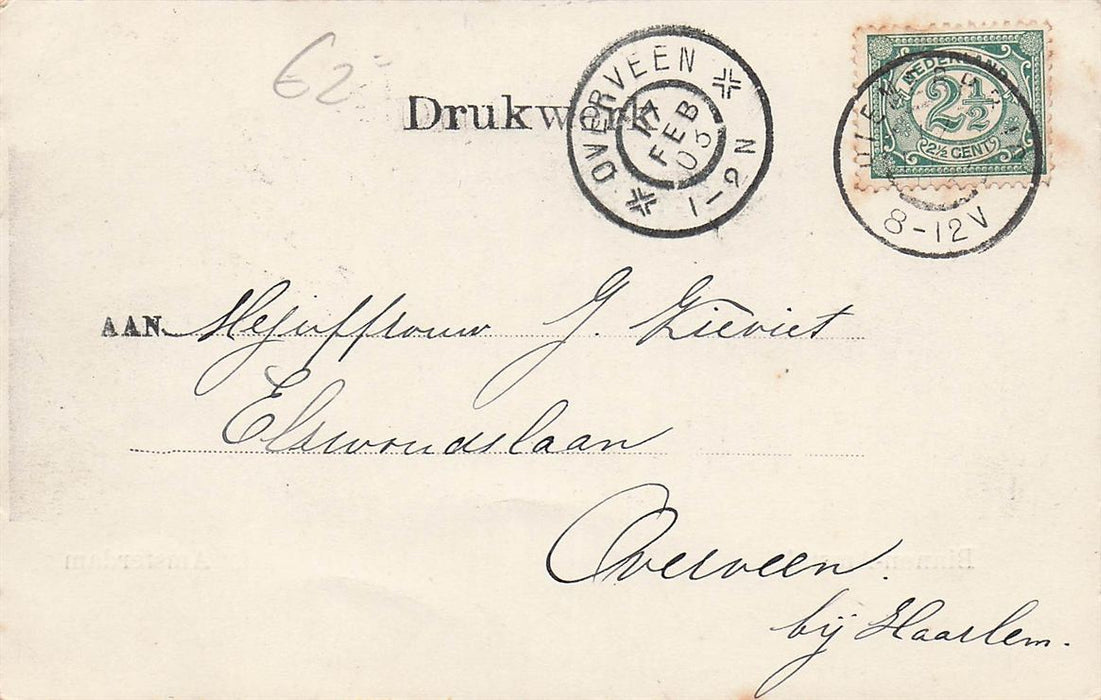 €2-
Drukwerk
OVERVEEN
17 FEB 03
1-2 N
NEDERLAND
2½
2½ CENT
8-12V
AAN Mejuffrouw G. Kieviet
Elswoudslaan
Overveen.
bij Haarlem.
Binnen Amsterdam